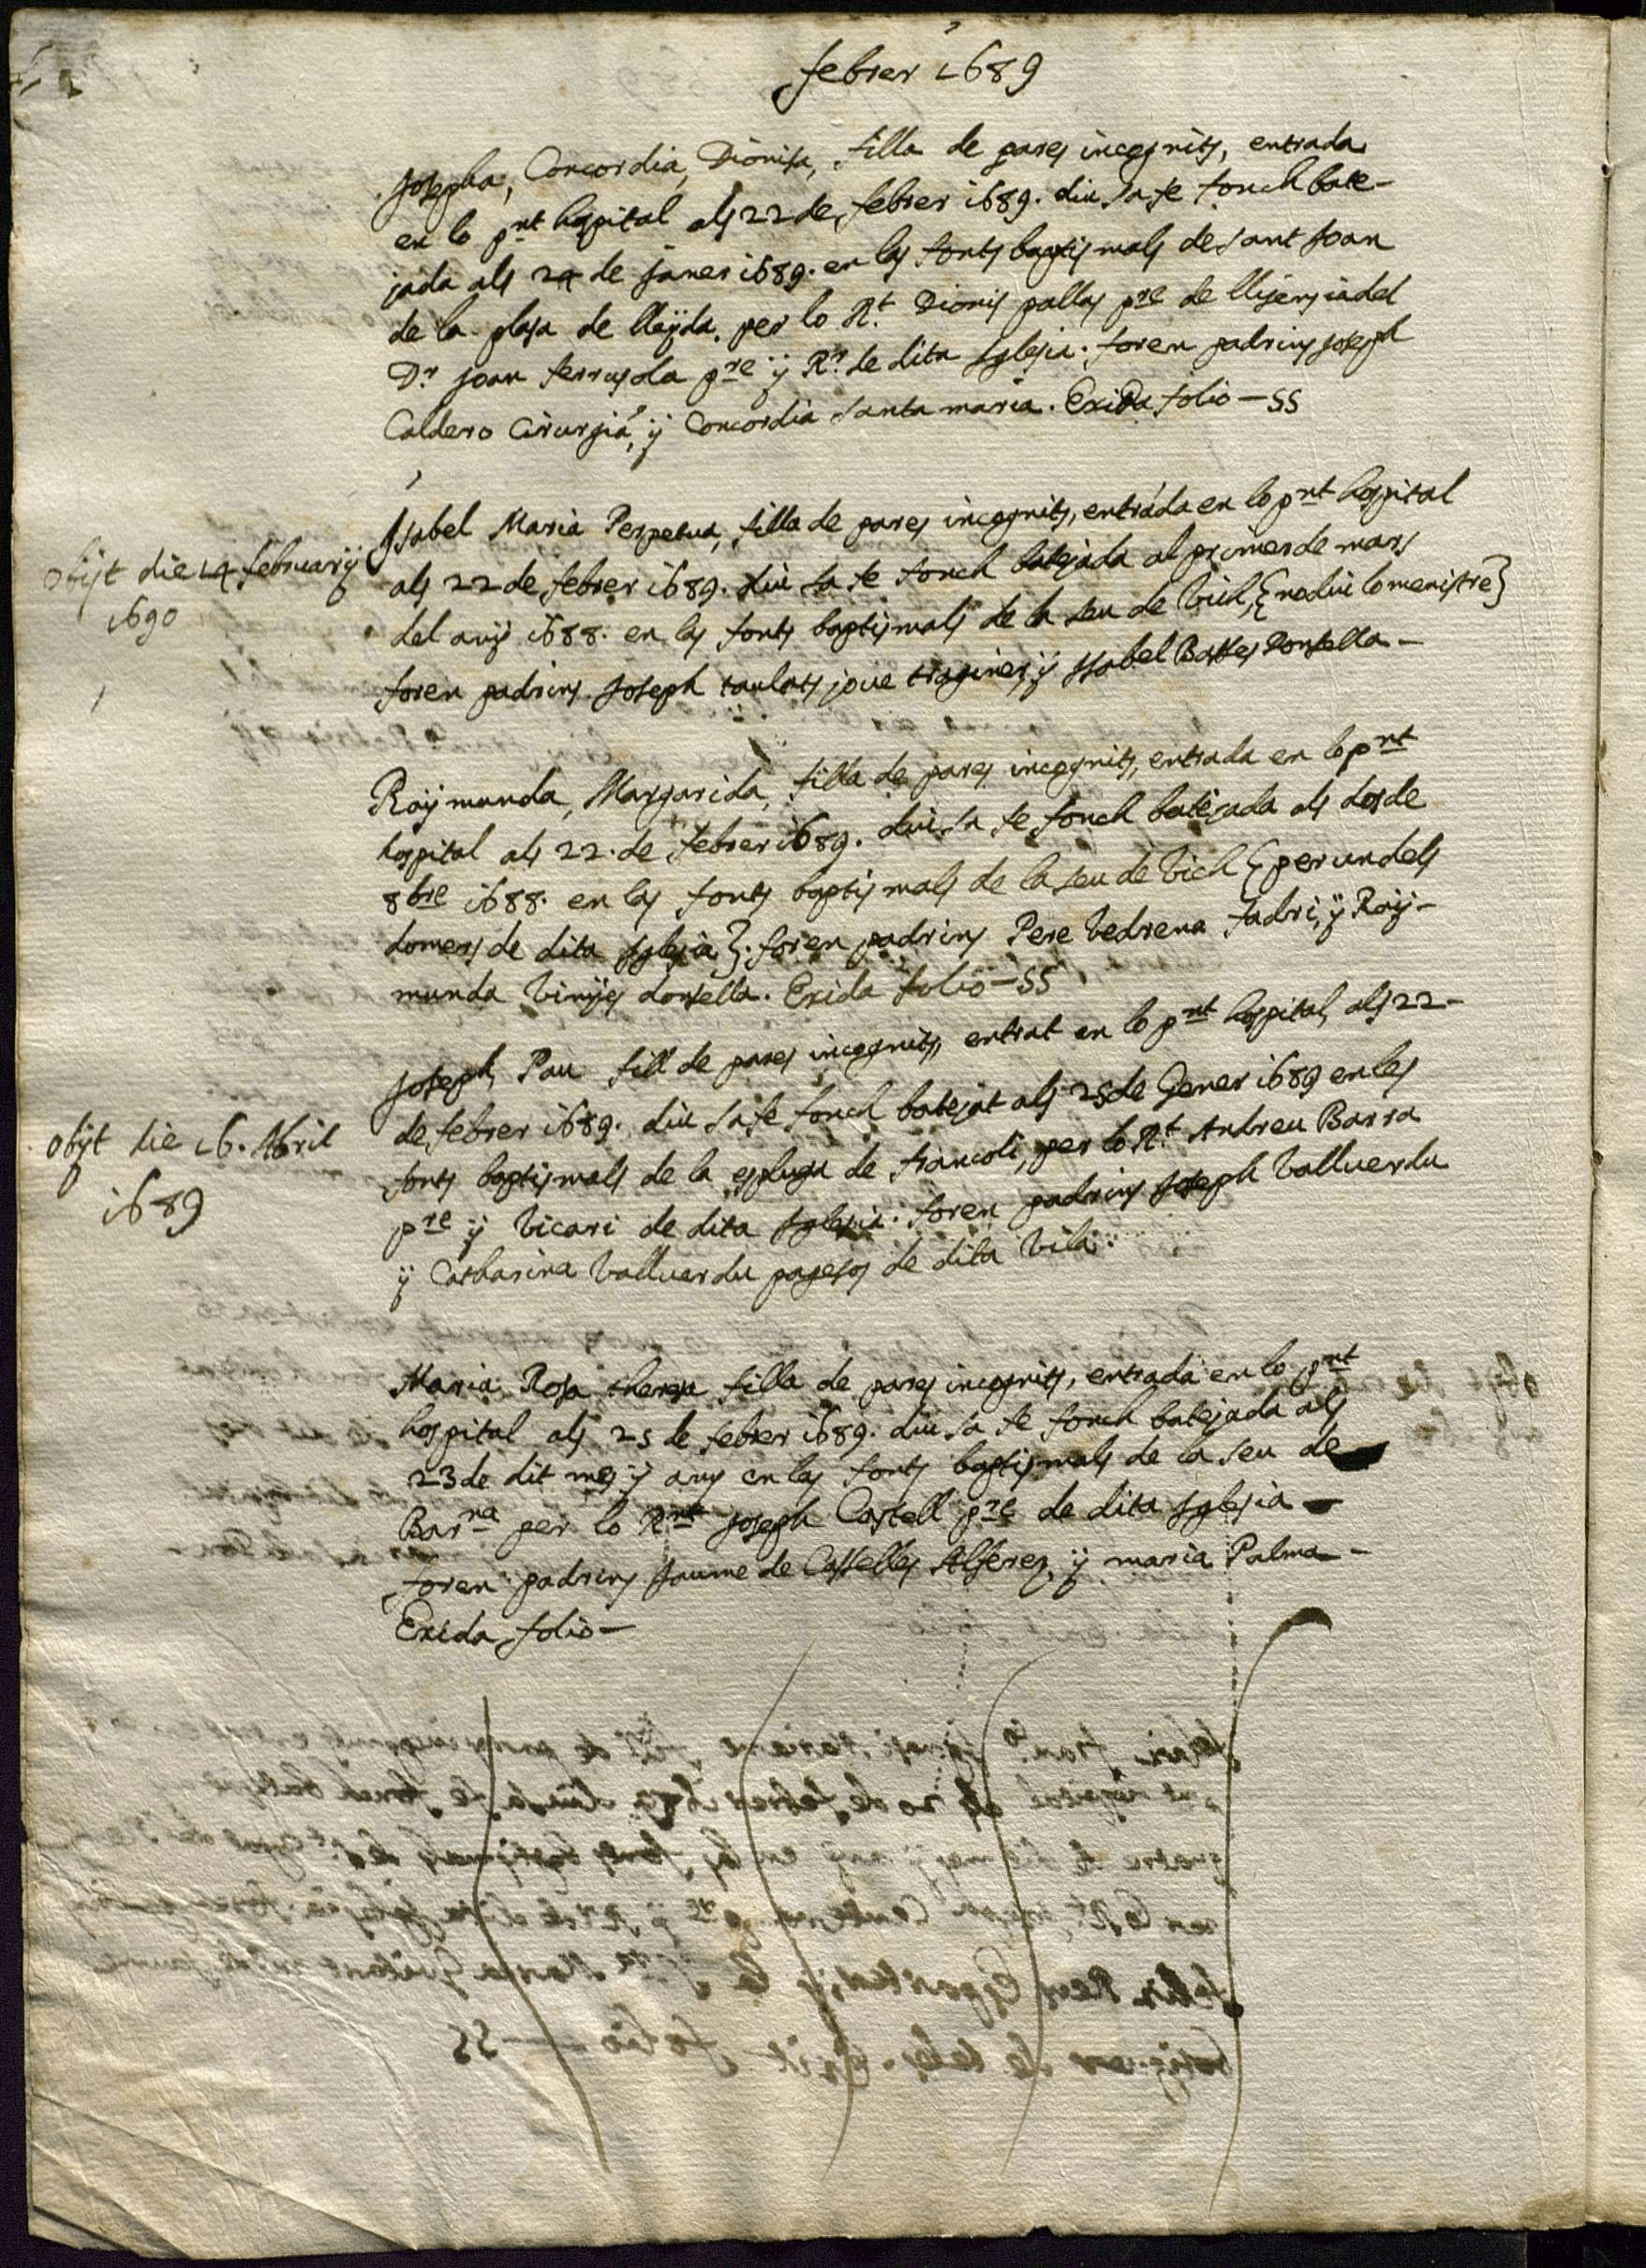 febrer 1689
Josepha, Concordia, Dionisa, filla de pares incognits, entrada
en lo pnt hospital als 22 de febrer 1689. diu sa fe fonch bate-
jada als 24 de janer 1689. en las fonts baptismals de sant Joan
de la plasa de lleÿda. per lo Rt. Dionis pallas pre de llisensia del
Dr. Joan ferrusola pre ÿ Rr. de dita Iglesia. foren padrins Joseph
Caldero Cirurgià, ÿ Concordia santa maria. Exida folio — 55
Isabel Maria Perpetua, filla de pares incognits, entrada en lo pnt hospital
als 22 de febrer 1689. diu sa fe fonch batejada al primer de mars
del anÿ 1688. en las fonts baptismals de la seu de Vich, {no diu lo menistre}
foren padrins Joseph taulats jove traginer, ÿ Isabel Basses donsella —
obijt die 14 februarij
1690
Raÿmunda, Margarida, filla de pares incognits, entrada en lo pnt
hospital als 22. de febrer 1689. diu sa fe fonch batejada als dos de
8bre 1688. en las fonts baptismals de la seu de Vich {per un dels
domers de dita Iglesia}. foren padrins Pere Vedrena fadri, ÿ Raÿ-
munda Vinÿes donsella. Exida folio — 55
Joseph, Pau fill de pares incognits, entrat en lo pnt hospital, als 22 —
de febrer 1689. diu sa fe fonch batejat als 25 de Gener 1689 en les
fonts baptismals de la espluga de francoli, per lo Rt. Andreu Barra
pre ÿ Vicari de dita Iglesia. foren padrins Joseph Vallverdu
ÿ Catharina Vallverdu pagesos de dita Vila.
obijt die 16. Abril
1689
Maria Rosa theresa filla de pares incognits, entrada en lo pnt
hospital als 25 de febrer 1689. diu sa fe fonch batejada als
23 de dit mes ÿ any en las fonts baptismals de la seu de
Barna per lo Rnt Joseph Castell pre de dita Iglesia —
foren padrins Jaume de Casselles Alferez, ÿ maria Palma —
Exida folio —